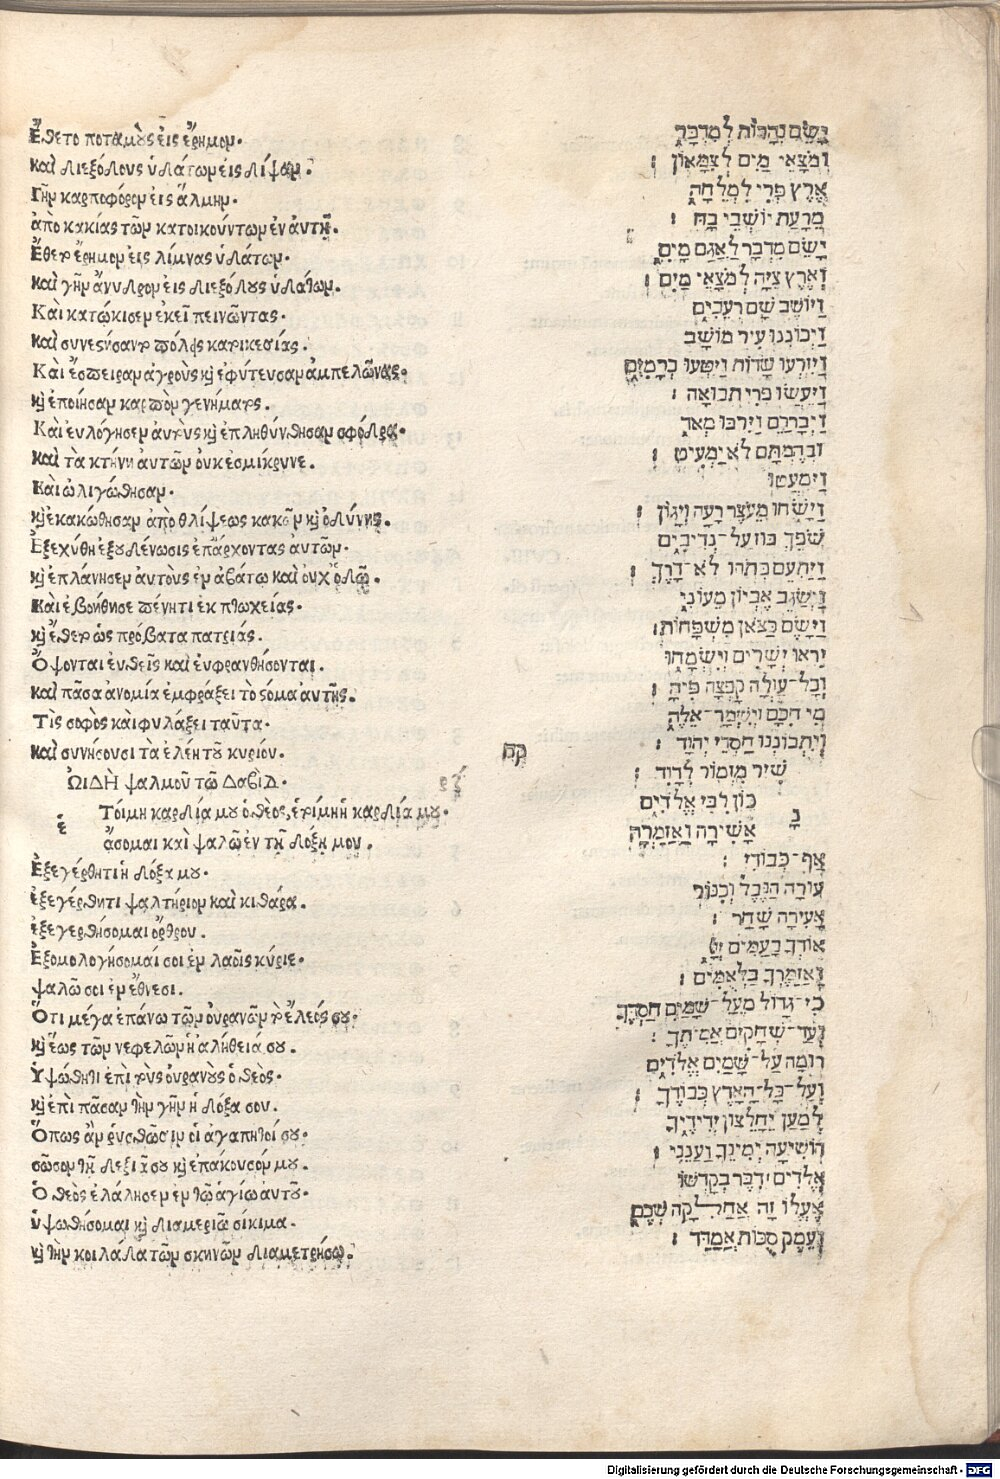 Ἔθετο ποταμοὺς εἰς ἔρημον.
καὶ διεξόδους ὑδάτων εἰς δίψαν.
Γῆν καρποφόρον εἰς ἅλμην.
ἀπὸ κακίας τῶν κατοικούντων ἐν ἀυτῇ.
Ἔθετο ἔρημον εἰς λίμνας ὑδάτων.
καὶ γῆν ἄνυδρον εἰς διεξόδους ὑδάτων.
Καὶ κατώκισεν ἐκεῖ πεινῶντας.
καὶ συνεστήσαντο πόλεις κατοικεσίας.
Καὶ ἔσπειραν ἀγροὺς κỳ ἐφύτευσαν ἀμπελῶνας.
κỳ ἐποίησαν καρπὸν γενήματος.
Καὶ ἐυλόγησεν ἀυτοὺς κỳ ἐπληθύνθησαν σφόδρα.
καὶ τὰ κτήνη ἀυτῶν ὀυκ ἐσμίκρυνε.
Καὶ ὠλιγώθησαν.
κỳ ἐκακώθησαν ἀπὸ θλίψεως κακῶν κỳ ὀδύνης.
Ἐξεχύθη ἐξουδένωσις ἐπ' ἄρχοντας ἀυτῶν.
κỳ ἐπλάνησεν ἀυτοὺς ἐν ἀβάτω καὶ ὀυχ ὁδῶ.
Καὶ ἐβοήθησε πένητι ἐκ πτωχείας.
κỳ ἔθετο ὡς πρόβατα πατριάς.
Ὄψονται ἐυθεῖς καὶ ἐυφρανθήσονται.
καὶ πᾶσα ἀνομία ἐμφράξει τὸ στόμα ἀυτῆς.
Τὶς σοφὸς καὶ φυλάξει ταῦτα.
καὶ συνήσουσι τὰ ἐλέη τοῦ κυρίου.
ὨΙΔῊ ψαλμοῦ τῶ Δαβίδ. ρζ
Ἑτοίμη καρδία μου ὁ θεὸς, ἑτοίμη ἡ καρδία μου.
ἄσομαι καὶ ψαλῶ ἐν τῆ δόξῃ μου.
Ἐξεγέρθητι ἡ δόξα μου.
ἐξεγέρθητι ψαλτήριον καὶ κιθάρα.
ἐξεγερθήσομαι ὄρθρου.
Ἐξομολογήσομαί σοι ἐν λαοῖς κύριε.
ψαλῶ σοι ἐν ἔθνεσι.
Ὅτι μέγα ἐπάνω τῶν ὀυρανῶν τὸ ἔλεός σου.
κỳ ἕως τῶν νεφελῶν ἡ ἀλήθειά σου.
Ὑψώθητι ἐπὶ τοὺς ὀυρανοὺς ὁ θεὸς.
κỳ ἐπὶ πᾶσαν τὴν γῆν ἡ δόξα σου.
Ὅπως ἂν ῥυσθῶσιν οἱ ἀγαπητοί σου.
σῶσον τῆ δεξιᾶ σου κỳ ἐπάκουσόν μου.
Ὁ θεὸς ἐλάλησεν ἐν τῶ ἁγίω ἀυτοῦ.
ὑψωθήσομαι κỳ διαμεριῶ σίκιμα.
κỳ τὴν κοιλάδα τῶν σκηνῶν διαμετρήσω.
יָשֵׂם נְהָרוֹת לְמִדְבָּר
וּמֹצָאֵי מַיִם לְצִמָּאוֹן ׃
אֶרֶץ פְּרִי לִמְלֵחָה
מֵרָעַת יוֹשְׁבֵי בָהּ ׃
יָשֵׂם מִדְבָּר לַאֲגַם מַיִם
וְאֶרֶץ צִיָּה לְמֹצָאֵי מָיִם ׃
וַיּוֹשֶׁב שָׁם רְעֵבִים
וַיְכוֹנְנוּ עִיר מוֹשָׁב
וַיִּזְרְעוּ שָׂדוֹת וַיִּטְּעוּ כְרָמִים
וַיַּעֲשׂוּ פְּרִי תְבוּאָה ׃
וַיְבָרֲכֵם וַיִּרְבּוּ מְאֹד
וּבְהֶמְתָּם לֹא יַמְעִיט ׃
וַיִּמְעֲטוּ
וַיָּשֹׁחוּ מֵעֹצֶר רָעָה וְיָגוֹן ׃
שֹׁפֵךְ בּוּז עַל־נְדִיבִים
וַיַּתְעֵם בְּתֹהוּ לֹא־דָרֶךְ ׃
וַיְשַׂגֵּב אֶבְיוֹן מֵעוֹנִי
וַיָּשֶׂם כַּצֹּאן מִשְׁפָּחוֹת׃
יִרְאוּ יְשָׁרִים וְיִשְׂמָחוּ
וְכָל־עַוְלָה קָפְצָה פִּיהָ ׃
מִי חָכָם וְיִשְׁמָר־אֵלֶּה
וְיִתְבּוֹנְנוּ חַסְדֵי יְהוָֹד ׃
קח
שִׁיר מִזְמוֹר לְדָוִד ׃
נָכוֹן לִבִּי אֱלֹדִים
אָשִׁירָה וַאֲזַמְּרָה
אַף־כְּבוֹדִי ׃
עוּרָה הַנֵּבֶל וְכִנּוֹר
אָעִירָה שָּׁחַר ׃
אוֹדְךָ בָעַמִּים
וַאֲזַמֶּרְךָ בַּלְאֻמִּים ׃
כִּי־גָדוֹל מֵעַל־שָׁמַיִם חַסְדֶּךָ
וְעַד־שְׁחָקִים אֲמִתֶּךָ ׃
רוּמָה עַל־שָׁמַיִם אֱלֹדִים
וְעַל־כָּל־הָאָרֶץ כְּבוֹדֶךָ ׃
לְמַעַן יֵחָלְצוּן יְדִידֶיךָ
הוֹשִׁיעָה יְמִינְךָ וַעֲנֵנִי ׃
אֱלֹדִים דִּבֶּר בְּקָדְשׁוֹ
אֶעְלוֹזָה אֲחַלְּקָה שְׁכֶם
וְעֵמֶק סֻכּוֹת אֲמַדֵּד ׃
Digitalisierung gefördert durch die Deutsche Forschungsgemeinschaft - DFG